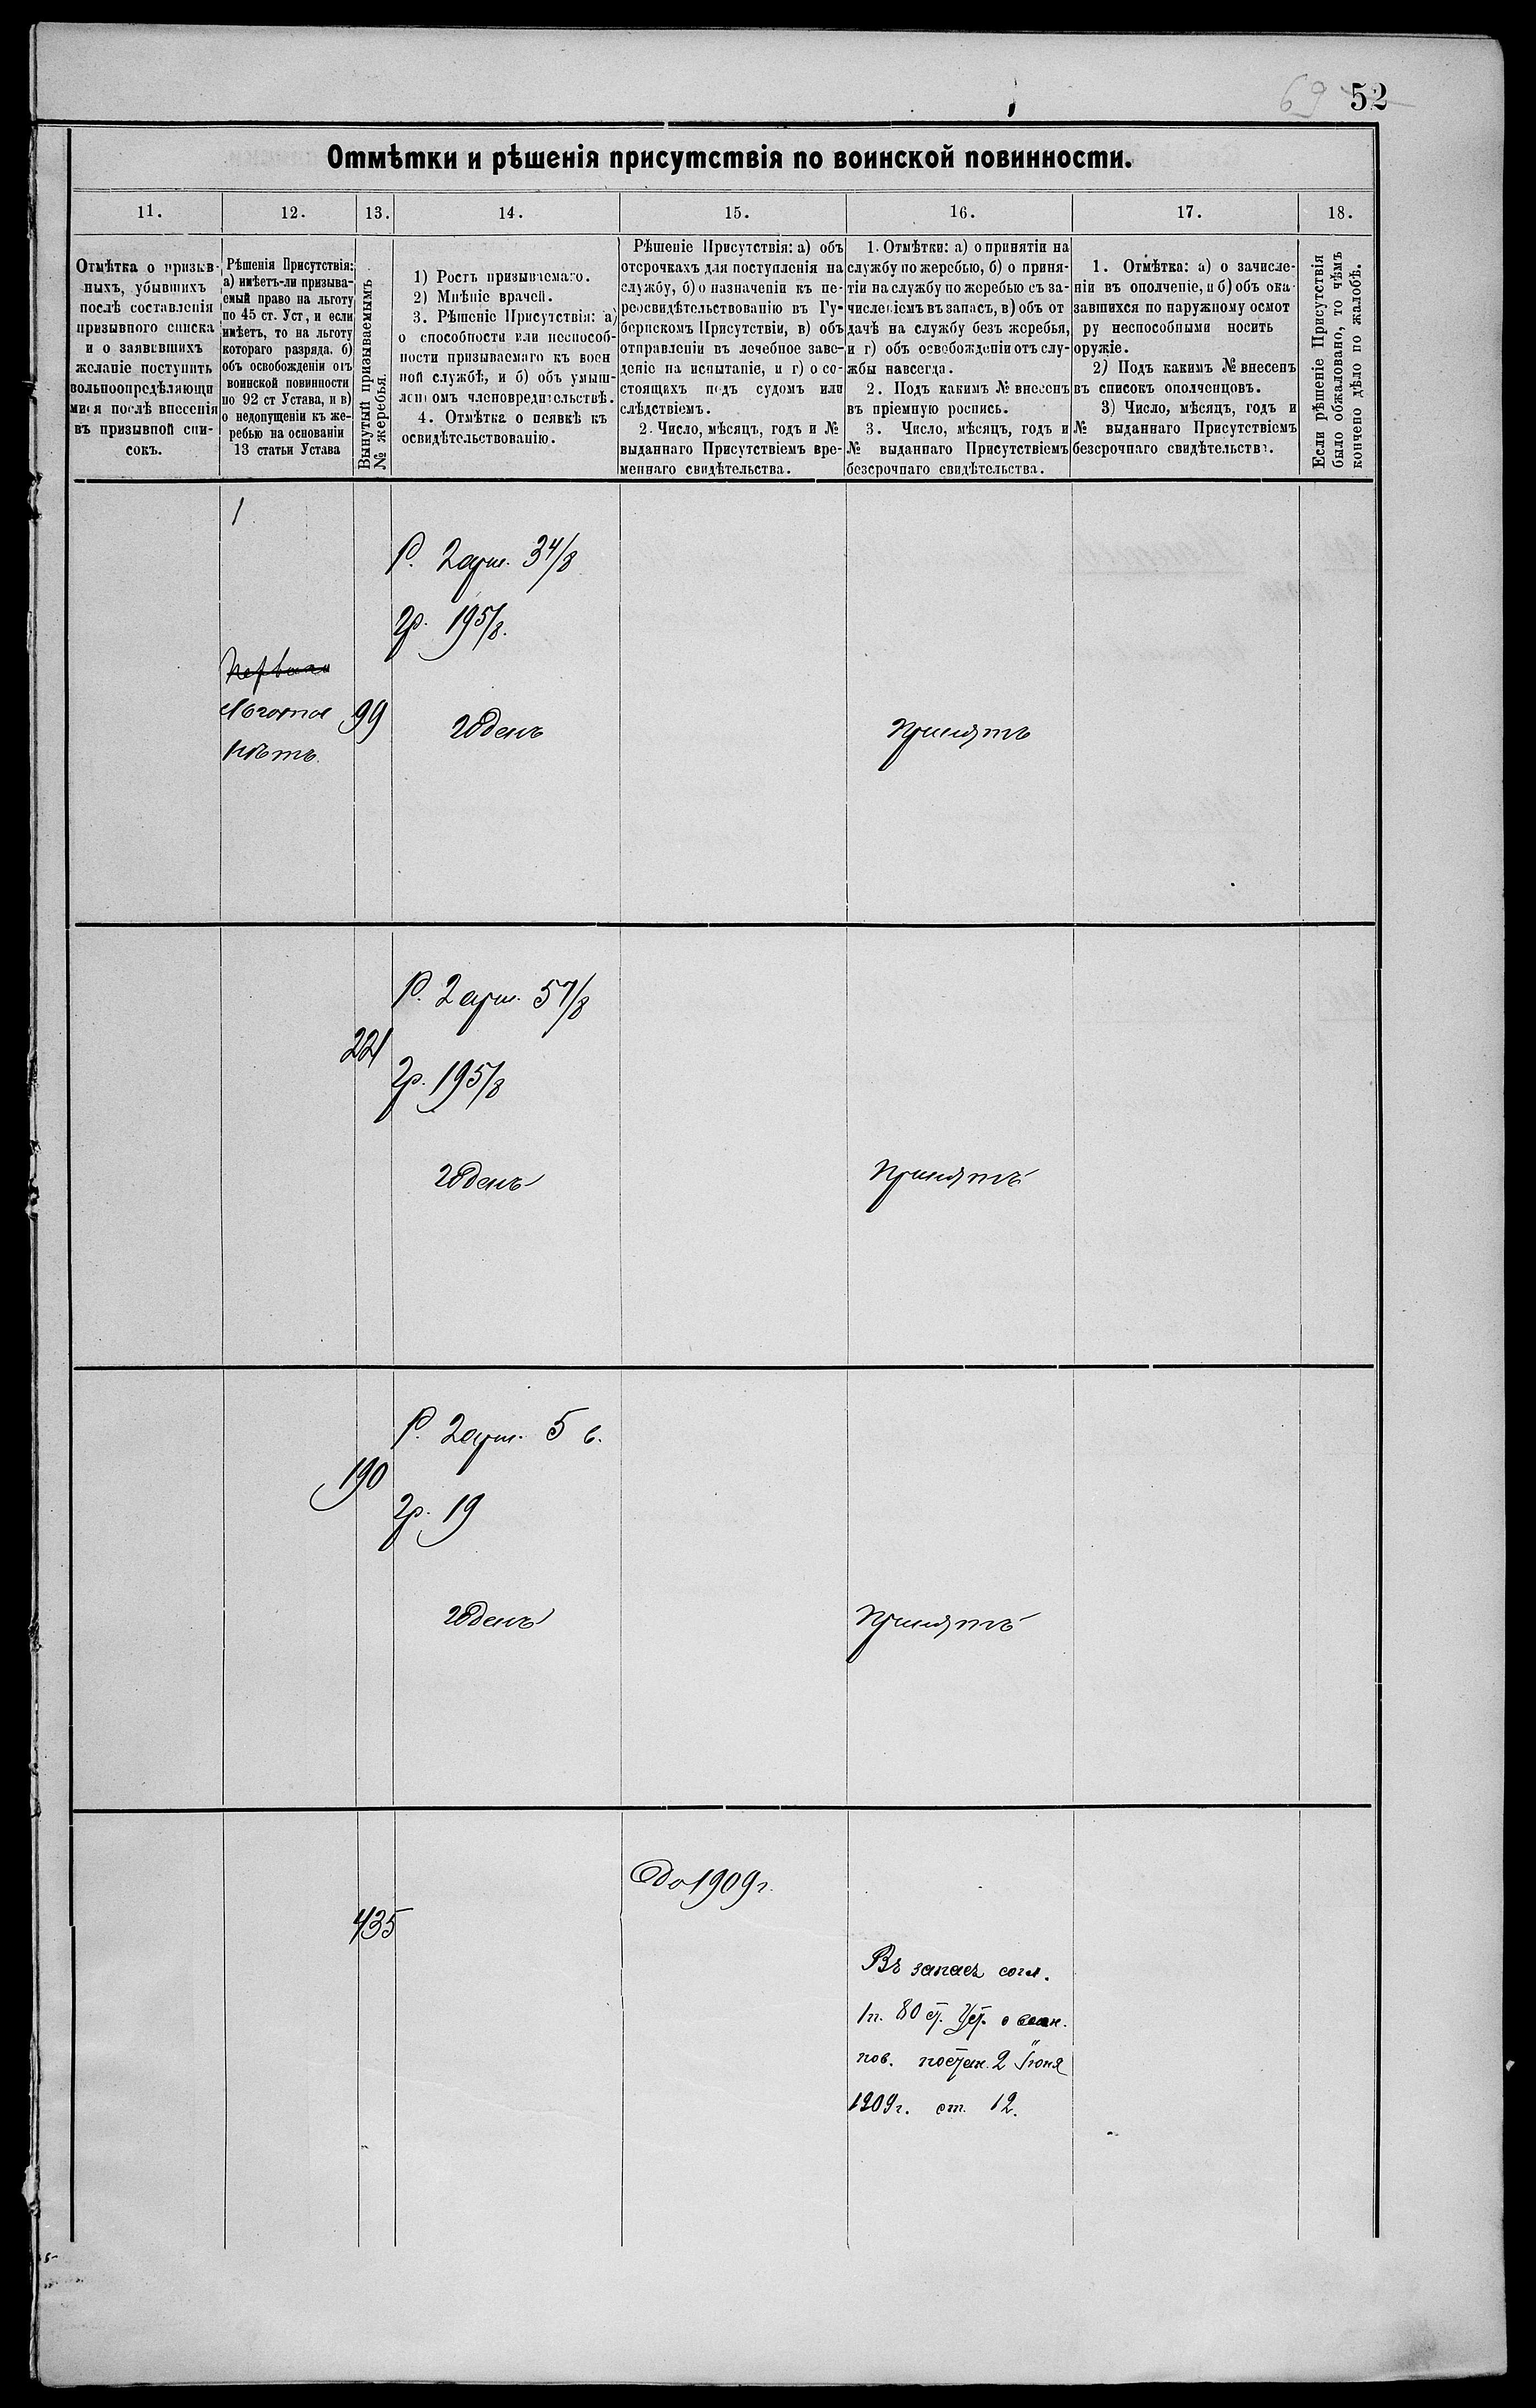 69 52
Отмѣтки и рѣшенія присутствія по воинской повинности.
11. 12. 13. 14. 15. 16. 17. 18.
Отмѣтка о призыв-
ныхъ, убывшихъ
послѣ составленія
призывного списка
и о заявившихъ
желаніе поступить
вольноопредѣляющи
мися послѣ внесенія
въ призывной спи-
сокъ.
Рѣшенія Присутствія:
а) имѣетъ-ли призыва-
емый право на льготу
по 45 ст. Уст, и если
имѣетъ, то на льготу
котораго разряда. б)
объ освобожденіи отъ
воинской повинности
по 92 ст Устава, и в)
о недопущеніи къ же-
ребью на основаніи
13 статьи Устава
Вынутый призываемымъ
№ жеребья.
1) Ростъ призываемаго.
2) Мнѣніе врачей.
3. Рѣшеніе Присутствія: а)
о способности или неспособ-
ности призываемаго къ воен
ной службѣ, и б) объ умыш-
леномъ членовредительствѣ.
4. Отмѣтка о неявкѣ къ
освидѣтельствованію.
Рѣшеніе Присутствія: а) объ
отсрочкахъ для поступленія на
службу, б) о назначеніи къ пе-
реосвидѣтельствованію въ Гу-
бернскомъ Присутствіи, в) объ
отправленіи въ лечебное заве-
деніе на испытаніе, и г) о со-
стоящихъ подъ судомъ или
слѣдствіемъ.
2. Число, мѣсяцъ, годъ и №
выданнаго Присутствіемъ вре-
меннаго свидѣтельства.
1. Отмѣтки: а) о принятіи на
службу по жеребью, б) о приня-
тіи на службу по жеребью съ за-
численіемъ въ запасъ, в) объ от
дачѣ на службу безъ жеребья,
и г) объ освобожденіи отъ слу-
жбы навсегда.
2. Подъ какимъ № внесенъ
въ пріемную роспись.
3. Число, мѣсяцъ, годъ и
№ выданнаго Присутствіемъ
безсрочнаго свидѣтельства.
1. Отмѣтка: а) о зачисле-
ніи въ ополченіе, и б) объ ока-
завшихся по наружному осмот
ру неспособными носить
оружіе.
2) Подъ какимъ № внесенъ
въ списокъ ополченцовъ.
3) Число, мѣсяцъ, годъ и
№ выданнаго Присутствіемъ
безсрочнаго свидѣтельства.
Если рѣшеніе Присутствія
было обжаловано, то чѣмъ
кончено дѣло по жалобѣ.
1
Р. 2 арш. 3 4/8
Гр. 19 5/8.
Первая
Льготы
нѣтъ.
99
годенъ
принятъ
Р. 2 арш. 5 7/8
221
Гр. 19 5/8
годенъ
принятъ
Р. 2 арш. 5 в.
190
Гр. 19
годенъ
принятъ
До 1909 г.
435
Въ запасъ согл.
1 п. 80 ст. Уст. о воин.
пов. постан. 2 Іюня
1909 г. ст. 12.